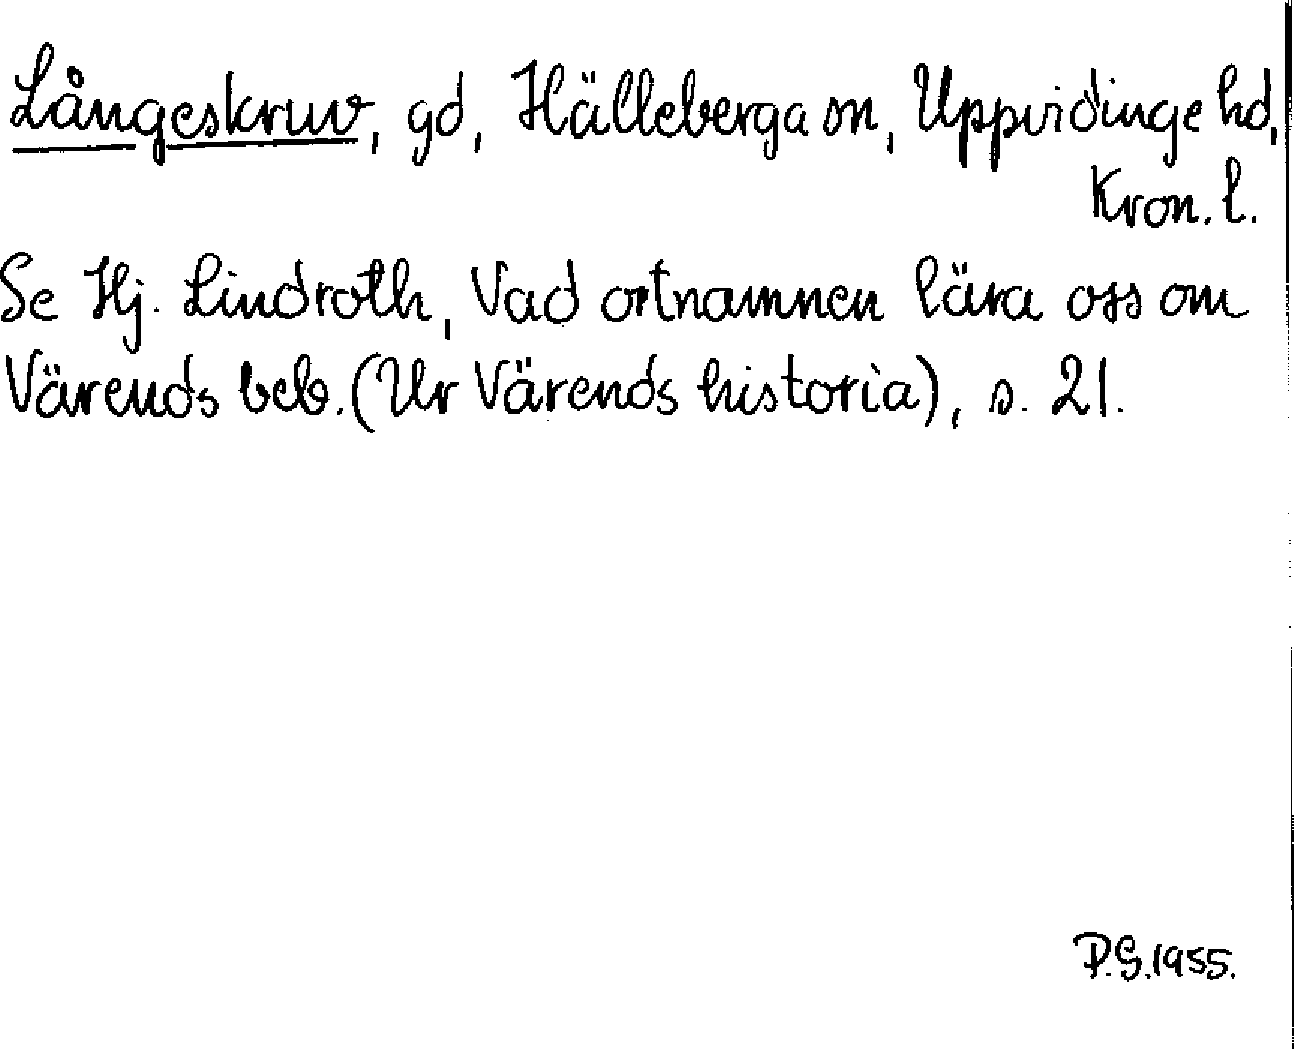 Långeskruv, gd, Hälleberga sn, Uppvidinge hd,
Kron. l.
Se Hj. Lindroth, Vad ortnamnen lära oss om
Värends beb. (Ur Värends historia), s. 21.
P.G.1955.